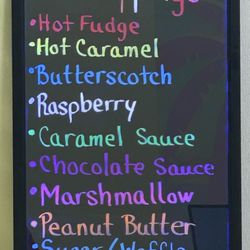 •Hot Fudge
•Hot Caramel
•Butterscotch
•Raspberry
•Caramel Sauce
•Chocolate Sauce
•Marshmallow
•Peanut Butter
•Sugar/Waffle